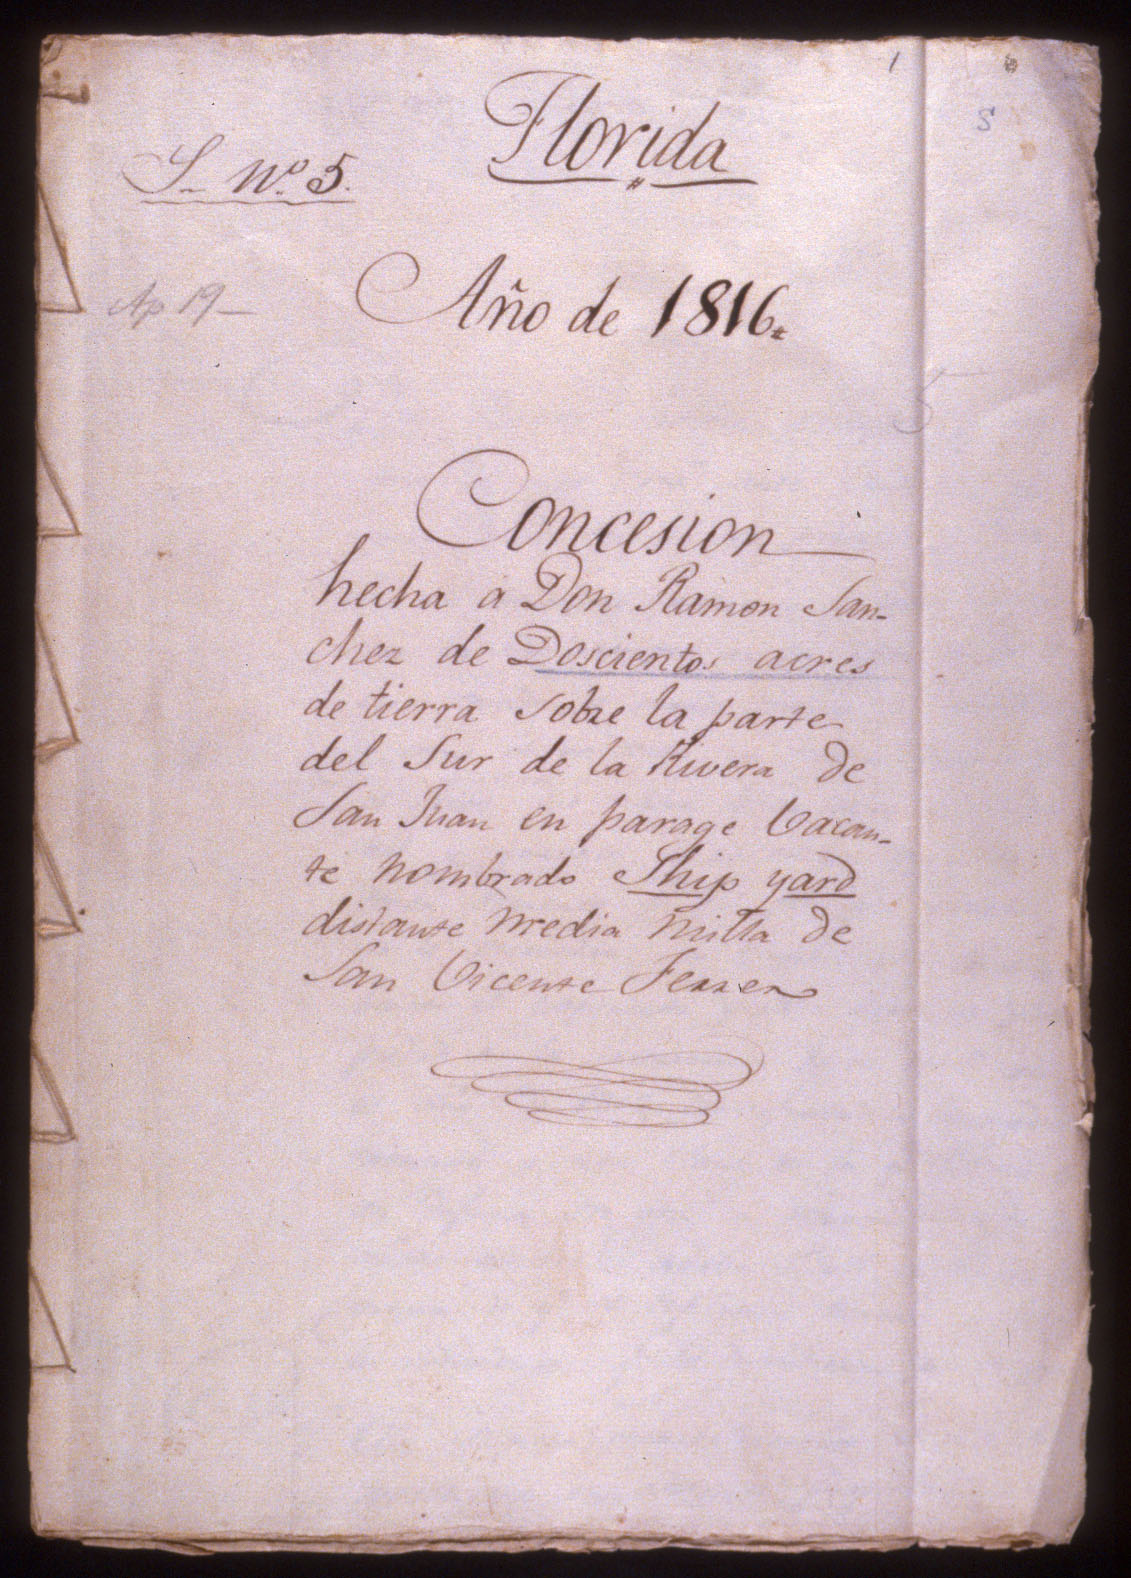 1
5
Florida
S. Nº. 5.
Año de 1816.
Ap 19
5
Concesion
hecha á Don Ramon San-
chez de Doscientos acres
de tierra sobre la parte
del Sur de la Rivera de
San Juan en parage Vacan-
te nombrado Ship yard
distante media milla de
San Vicente Ferrer